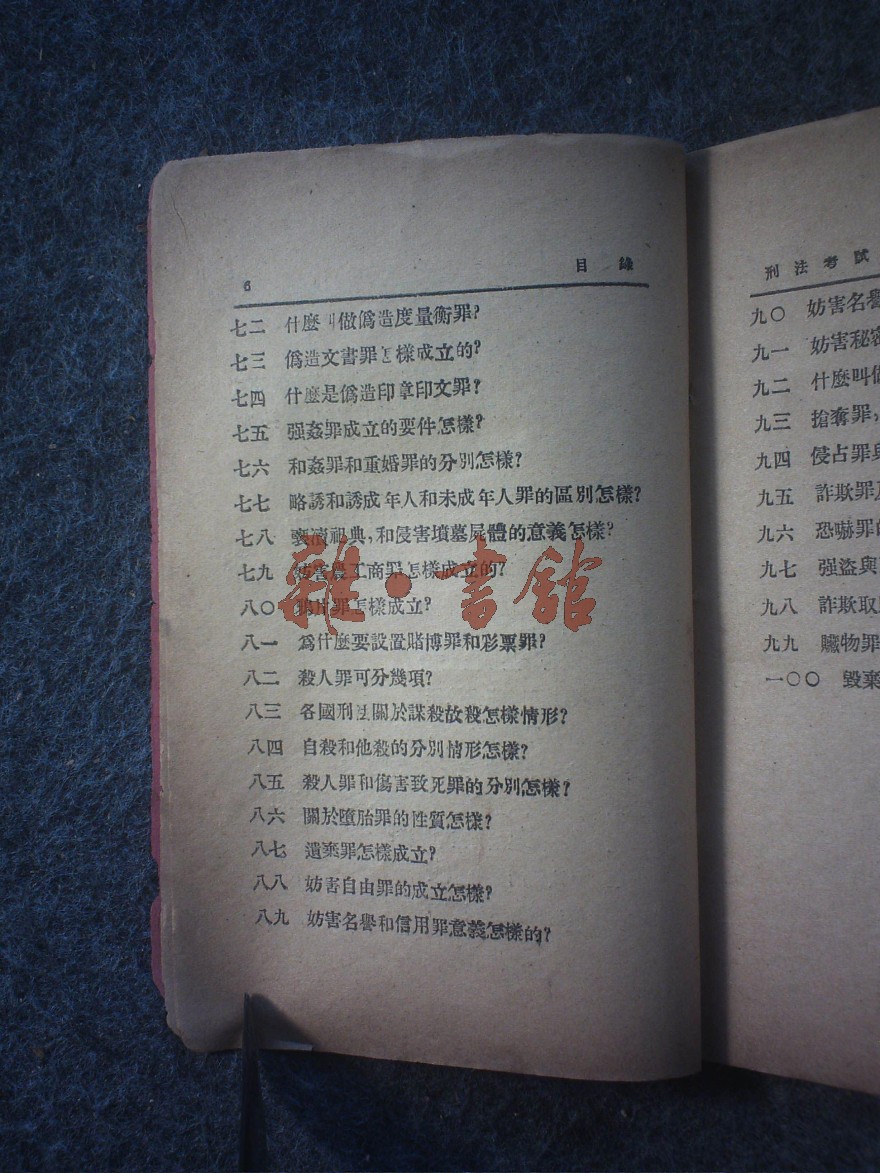 6 目錄
七二 什麼叫做僞造度量衡罪?
七三 僞造文書罪怎樣成立的?
七四 什麼是僞造印章印文罪?
七五 强姦罪成立的要件怎樣?
七六 和姦罪和重婚罪的分別怎樣?
七七 略誘和誘成年人和未成年人罪的區別怎樣?
七八 褻瀆祀典,和侵害墳墓屍體的意義怎樣?
七九 妨害農工商罪怎樣成立的?
八〇 鴉片罪怎樣成立?
八一 爲什麼要設置賭博罪和彩票罪?
八二 殺人罪可分幾項?
八三 各國刑法關於謀殺故殺怎樣情形?
八四 自殺和他殺的分別情形怎樣?
八五 殺人罪和傷害致死罪的分別怎樣?
八六 關於墮胎罪的性質怎樣?
八七 遺棄罪怎樣成立?
八八 妨害自由罪的成立怎樣?
八九 妨害名譽和信用罪意義怎樣的?
雜·書館
刑法考試
九〇 妨害名譽
九一 妨害秘密
九二 什麼叫做
九三 搶奪罪,
九四 侵占罪與
九五 詐欺罪及
九六 恐嚇罪的
九七 强盜與
九八 詐欺取
九九 贓物罪
一〇〇 毀棄